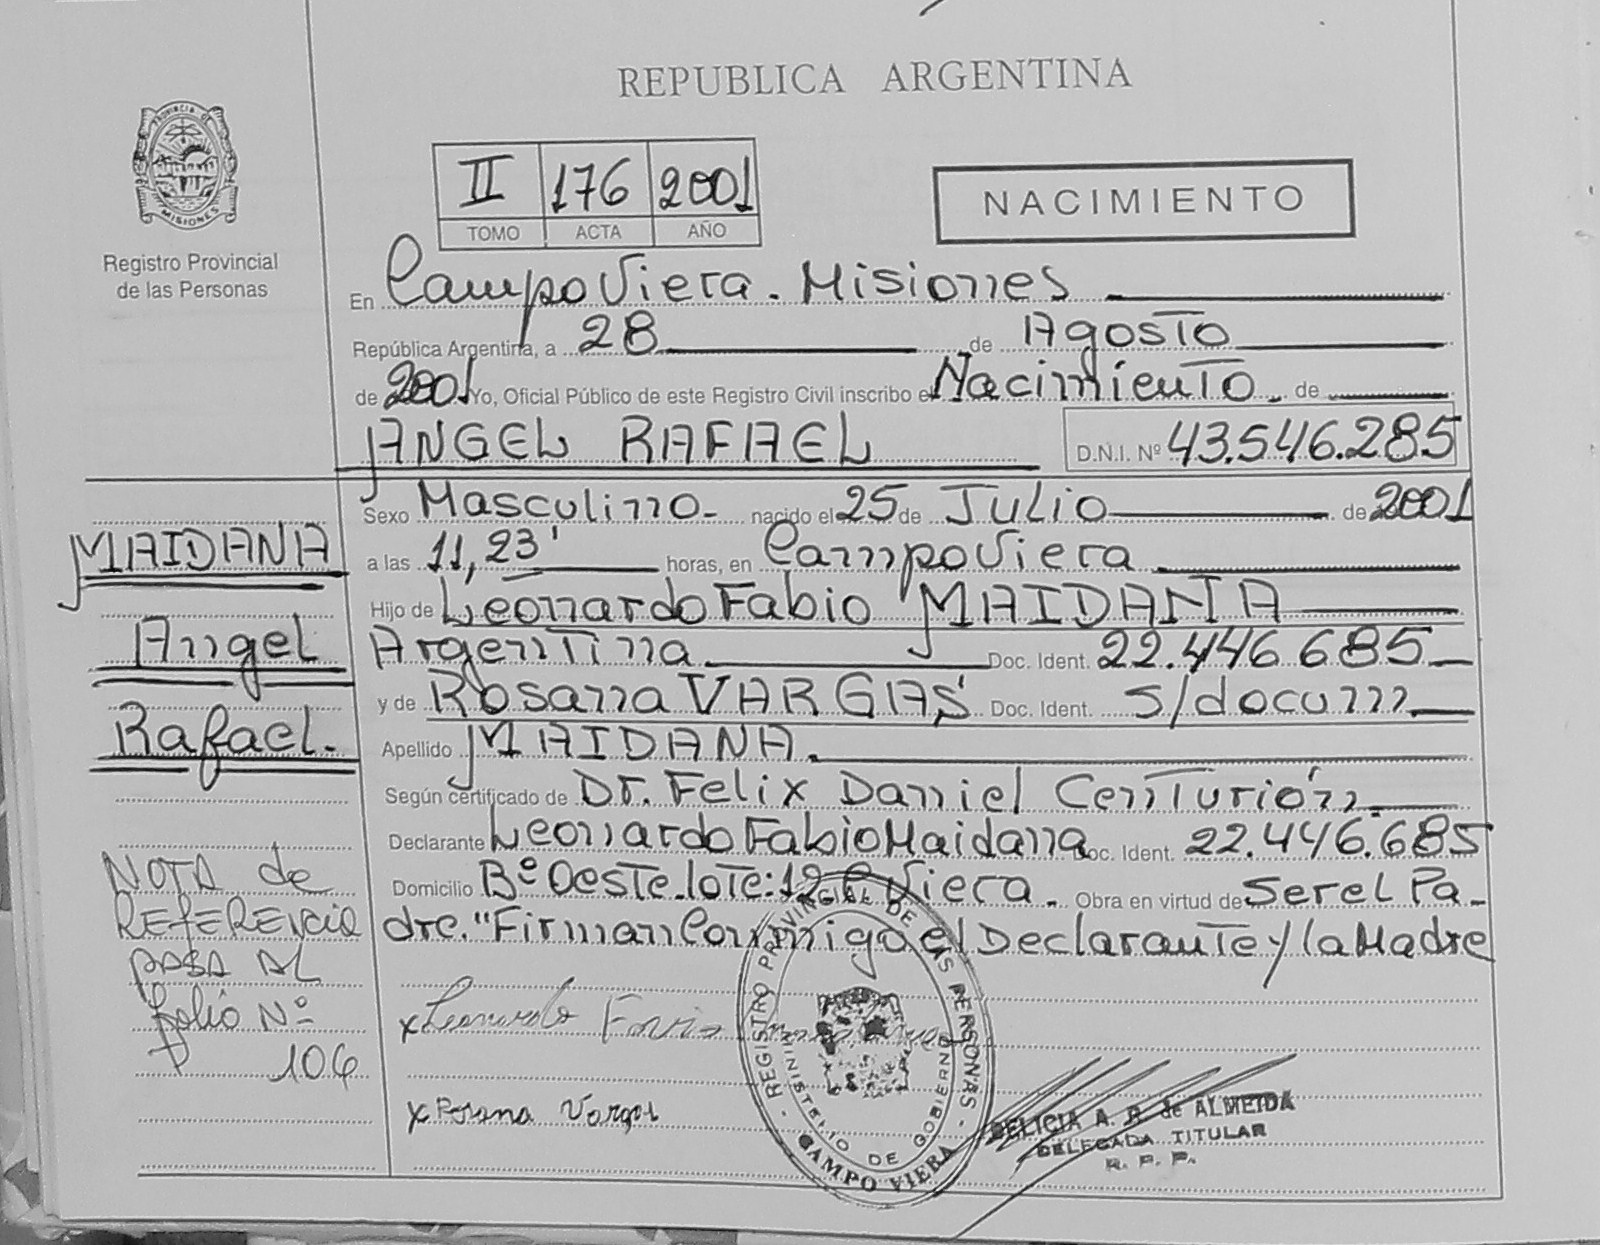 REPUBLICA ARGENTINA
PROVINCIA DE MISIONES
Registro Provincial
de las Personas
II 176 2001
TOMO ACTA AÑO
NACIMIENTO
En Campo Viera. Misiones
República Argentina, a 28 de Agosto
de 2001 Yo, Oficial Público de este Registro Civil inscribo el Nacimiento. de
ANGEL RAFAEL D.N.I. Nº 43.546.285
MAIDANA
Angel
Rafael.
Sexo Masculino- nacido el 25 de Julio de 2001
a las 11,23' horas, en Campo Viera
Hijo de Leonardo Fabio MAIDANA
Argentina Doc. Ident. 22.446.685
y de Rosana VARGAS Doc. Ident. s/docum
Apellido MAIDANA.
Según certificado de Dr. Felix Daniel Centurión
Declarante Leonardo Fabio Maidana Doc. Ident. 22.446.685
Domicilio Bº Oeste lote: 12 C. Viera. Obra en virtud de Ser el Pa-
dre. "Firman Conmigo el Declarante y la Madre
NOTA de
REFERENCIA
PASA AL
folio Nº
106
x Leonardo
x Rosana Vargas
REGISTRO PROVINCIAL DE LAS PERSONAS
MINISTERIO DE GOBIERNO
CAMPO VIERA
DELICIA A. R. de ALMEIDA
DELEGADA TITULAR
R. P. P.